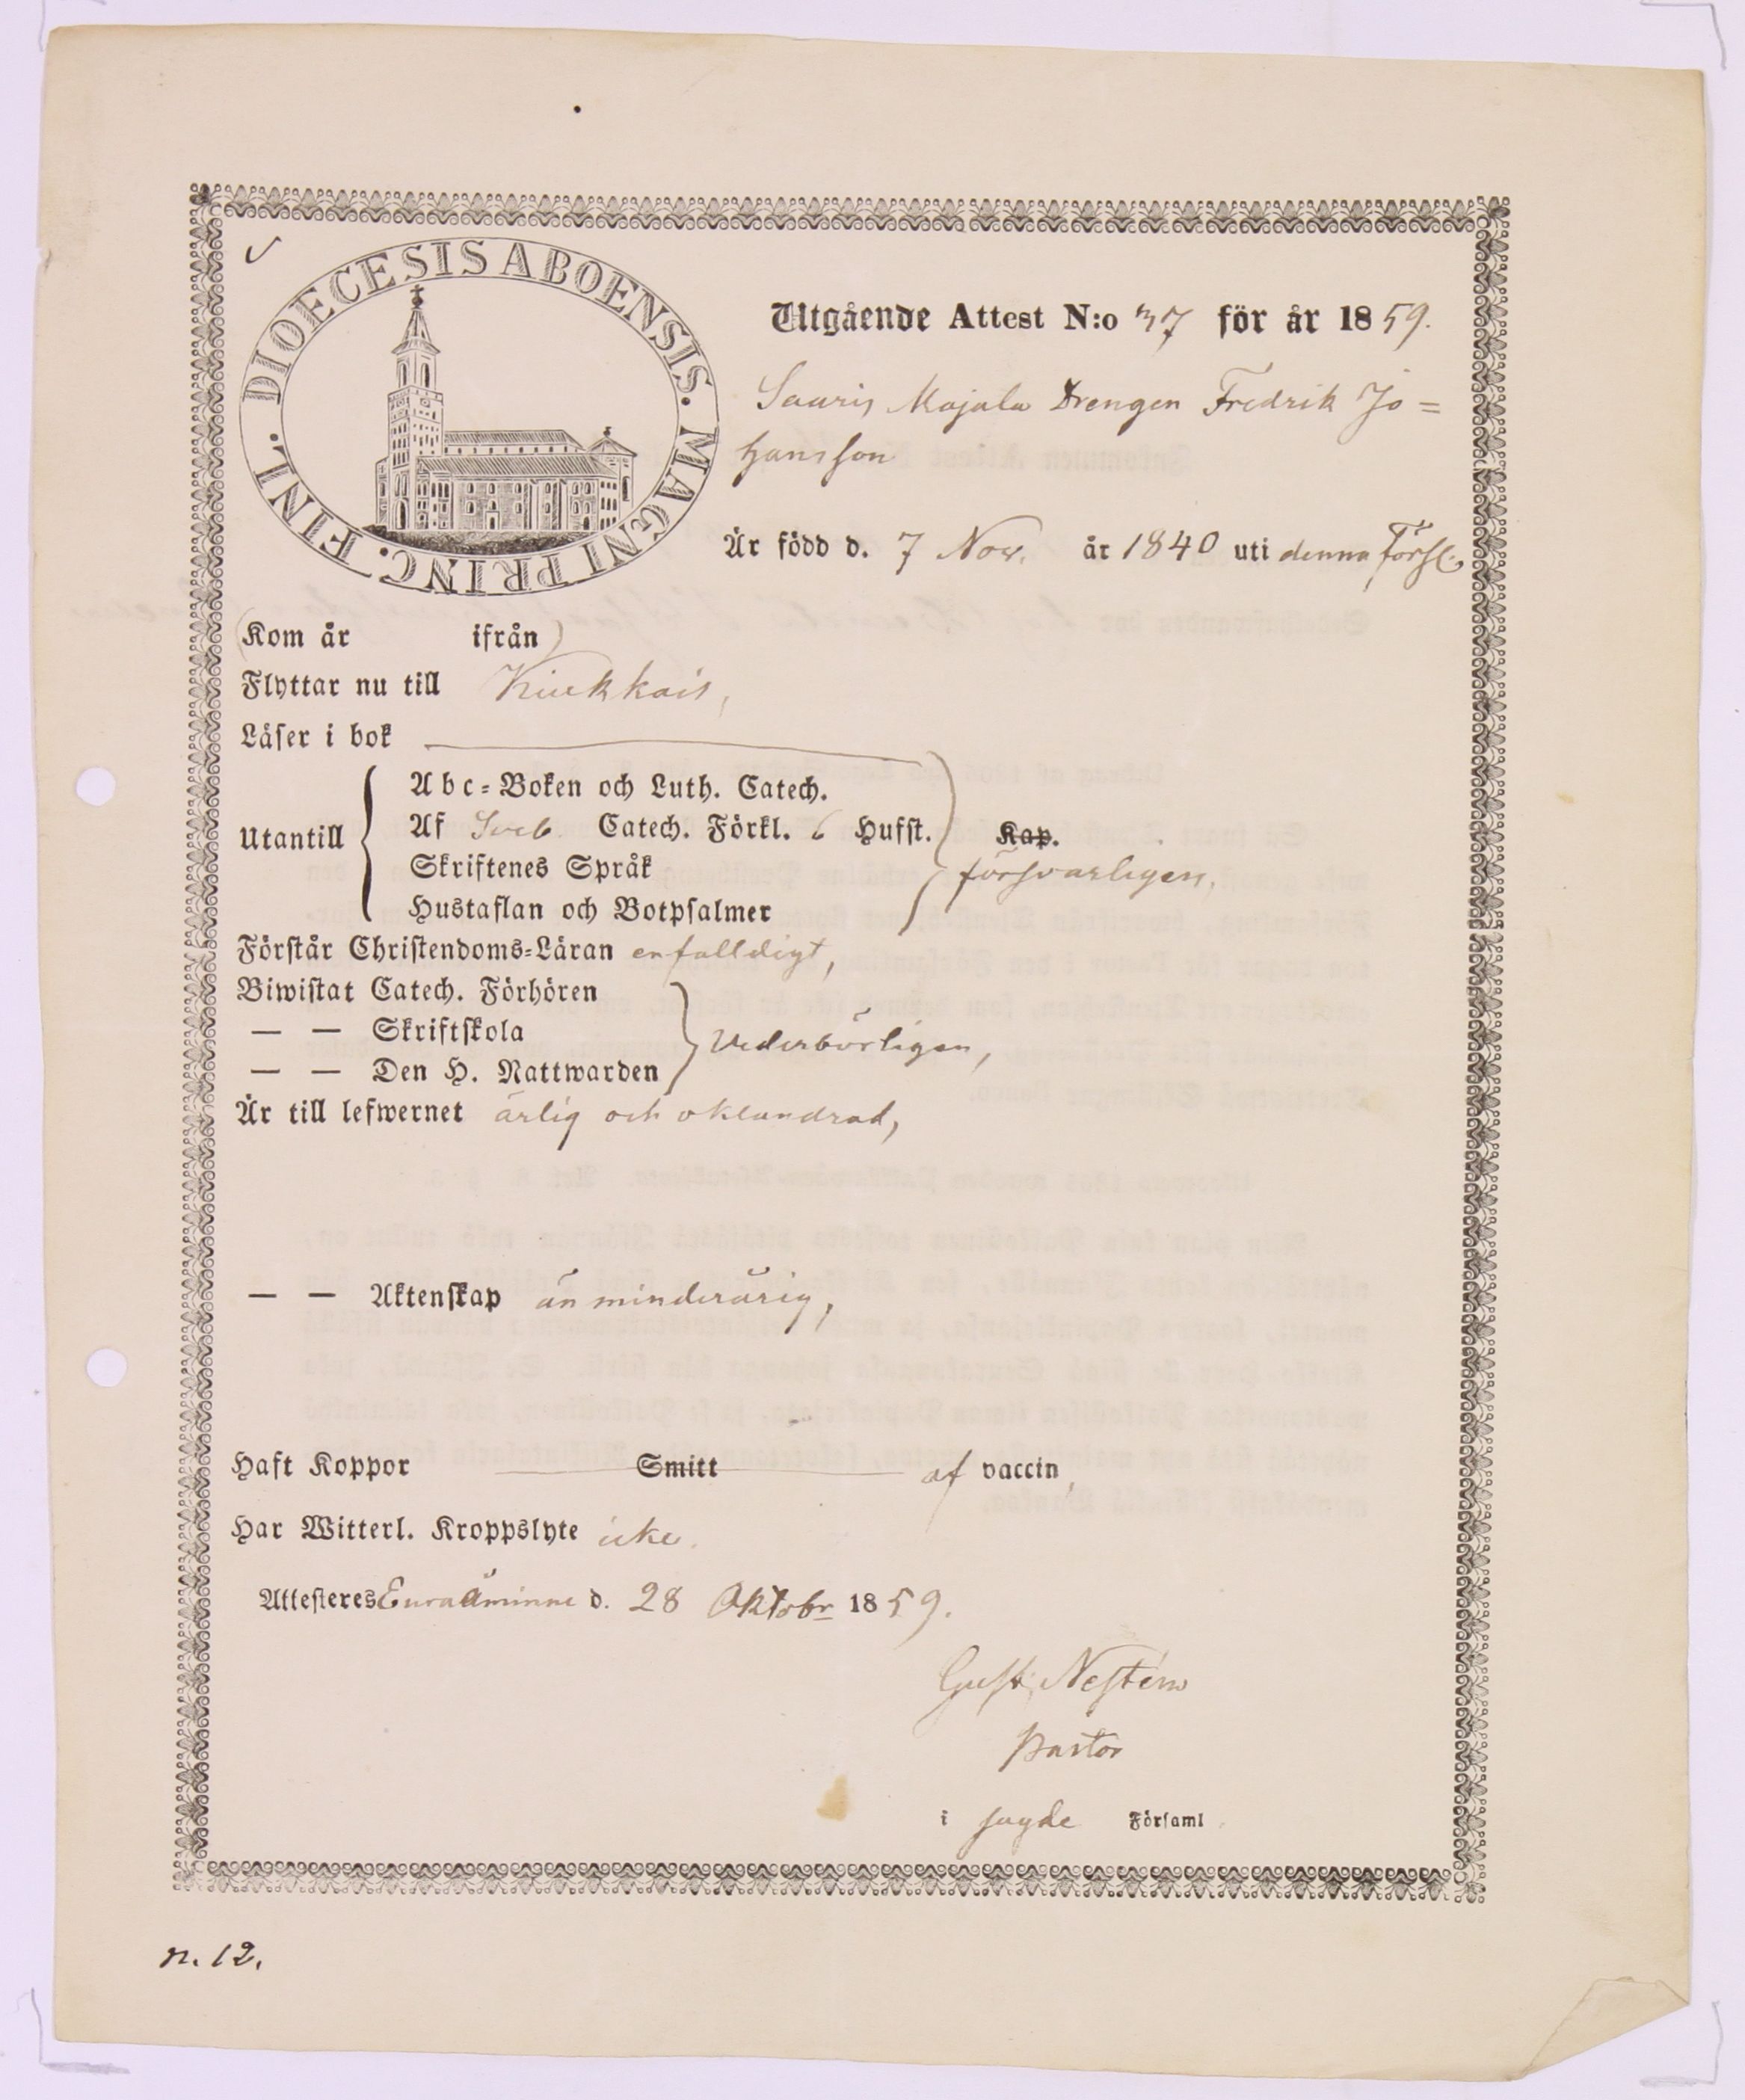 DIOECESIS ABOENSIS. MAGNI PRINC. FINL.
Utgående Attest N:o 37 för år 1859.
Sauris Majala Drengen Fredrik Jo=
hansson
Är född d. 7 Nov. år 1840 uti denna Förs.
(Kom år ifrån)
Flyttar nu till Kiukkais,
Läser i bok
Utantill
Abc=Boken och Luth. Catech.
Af Sveb. Catech. Förkl. 6 Hufst. Kap.
Skriftenes Språk försvarligen,
Hustaflan och Botpsalmer
Förstår Christendoms=Läran enfalldigt,
Biwistat Catech. Förhören
— — Skriftskola vederbörligen,
— — Den H. Nattwarden
Är till lefwernet ärlig och oklandrad,
— — Äktenskap än minderårig,
Haft Koppor Smitt af vaccin,
Har Witterl. Kroppslyte icke.
Attesteres Euraåminne d. 28 Oktobr 1859.
Gust. Nestém
Pastor
i sagde Församl.
n. 12.